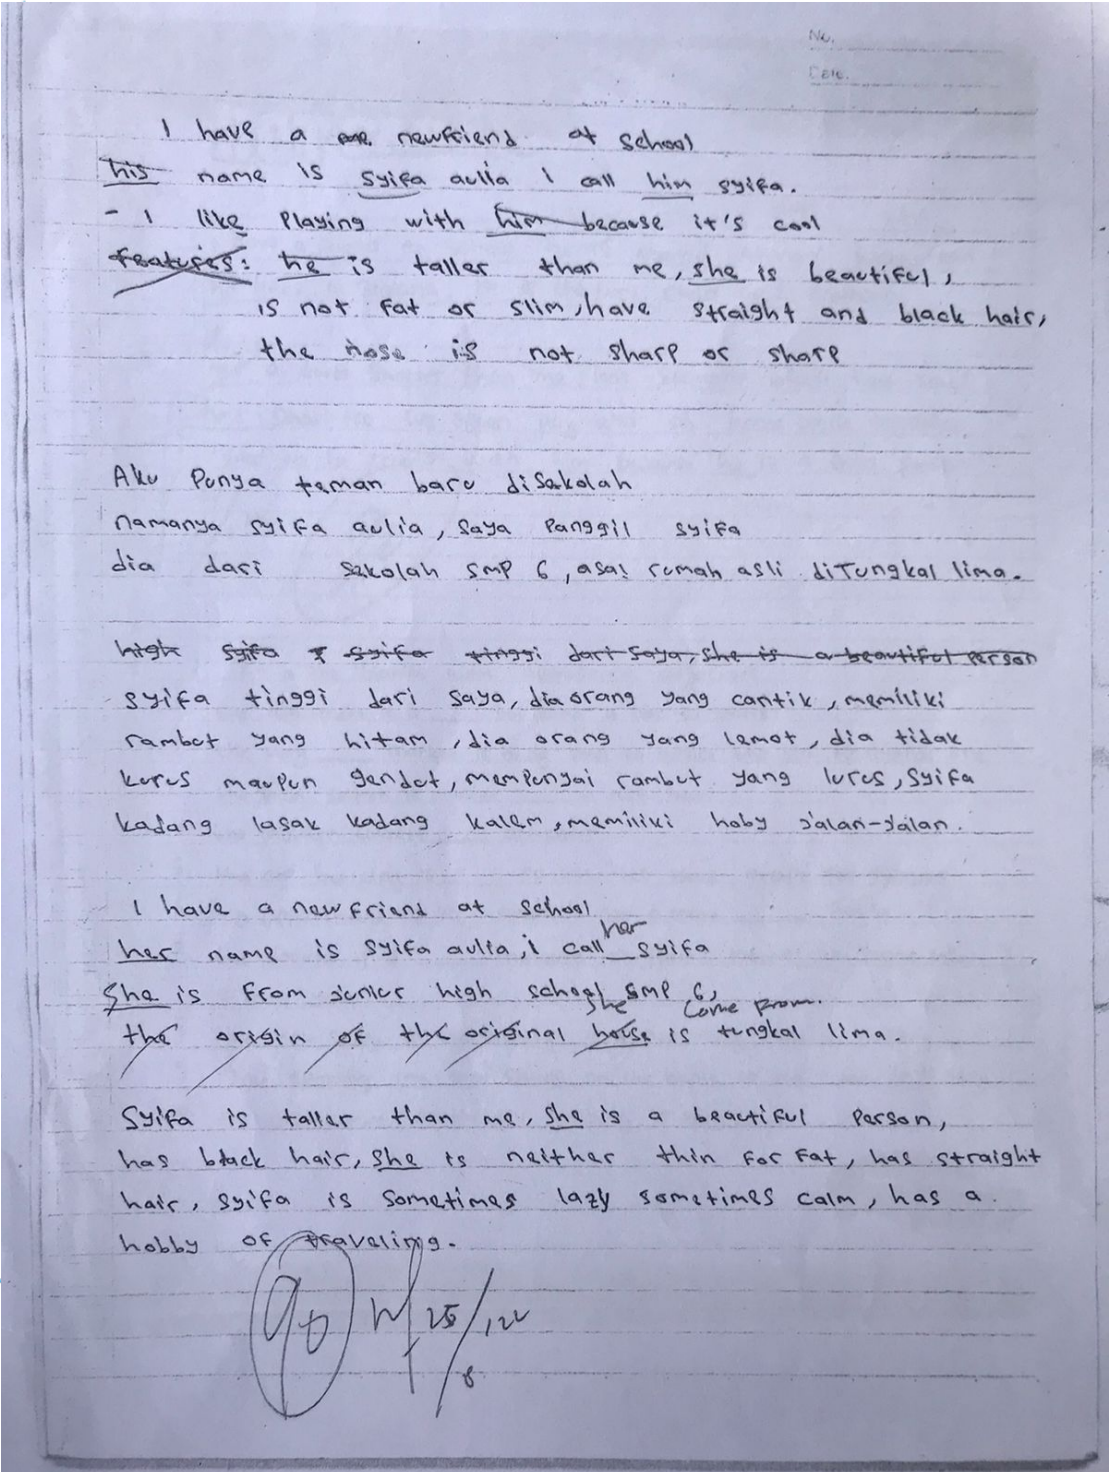 No.
Date.
I have a new friend at school
his name is syifa aulia i call him syifa.
- I like Playing with him because it's cool
Features: he is taller than me, she is beautiful,
is not fat or slim, have straight and black hair,
the nose is not sharp or sharp
Aku Punya teman baru disekolah
namanya syifa aulia, saya Panggil syifa
dia dari sekolah SMP 6, asal rumah asli diTungkal lima.
high syifa syifa tinggi dari saya, she is a beautiful Person
syifa tinggi dari saya, dia orang yang cantik, memiliki
rambut yang hitam, dia orang yang lemot, dia tidak
kurus maupun gendut, mempunyai rambut yang lurus, syifa
kadang lasak kadang kalem, memiliki hoby jalan-jalan.
I have a new friend at school
her name is syifa aulia, i call her syifa
She is from junior high school SMP 6,
she come prom.
the origin of the original house is tungkal lima.
Syifa is taller than me, she is a beautiful Person,
has black hair, she is neither thin for fat, has straight
hair, syifa is sometimes lazy sometimes calm, has a
hobby of traveling.
90 25/8